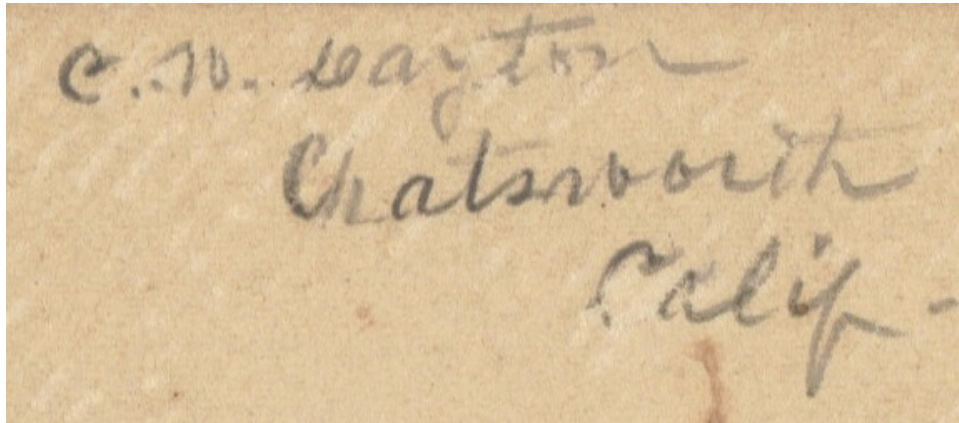 C. W. Dayton
Chatsworth
Calif-